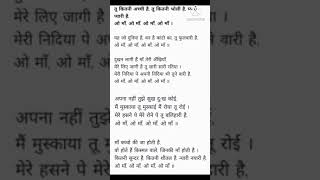 तू कितनी अच्छी है, तू कितनी भोली है,
प्यारी है,
ओ माँ, ओ माँ, ओ माँ, ओ माँ ।
यह जो दुनिया है, वन है कांटों का, तू फुलवारी है,
ओ माँ, ओ माँ, ओ माँ, ओ माँ ॥
दुखन लागी है माँ तेरी अँखियाँ,
मेरे लिए जागी है तू सारी सारी रतियाँ ।
मेरी निंदिया पे अपनी निंदिया भी तूने वारी है,
ओ माँ, ओ माँ, ओ माँ, ओ माँ ॥
अपना नहीं तुझे सुख दुःख कोई,
मैं मुस्काया तू मुस्काई मैं रोया तू रोई ।
मेरे हसने पे मेरे रोने पे तू बलिहारी है,
ओ माँ, ओ माँ, ओ माँ, ओ माँ ॥
माँ बच्चों की जां होती है,
वो होते हैं किस्मत वाले, जिनकी माँ होती है ।
कितनी सुन्दर है, कितनी शीतल है, न्यारी न्यारी है,
ओ माँ, ओ माँ, ओ माँ, ओ माँ ॥